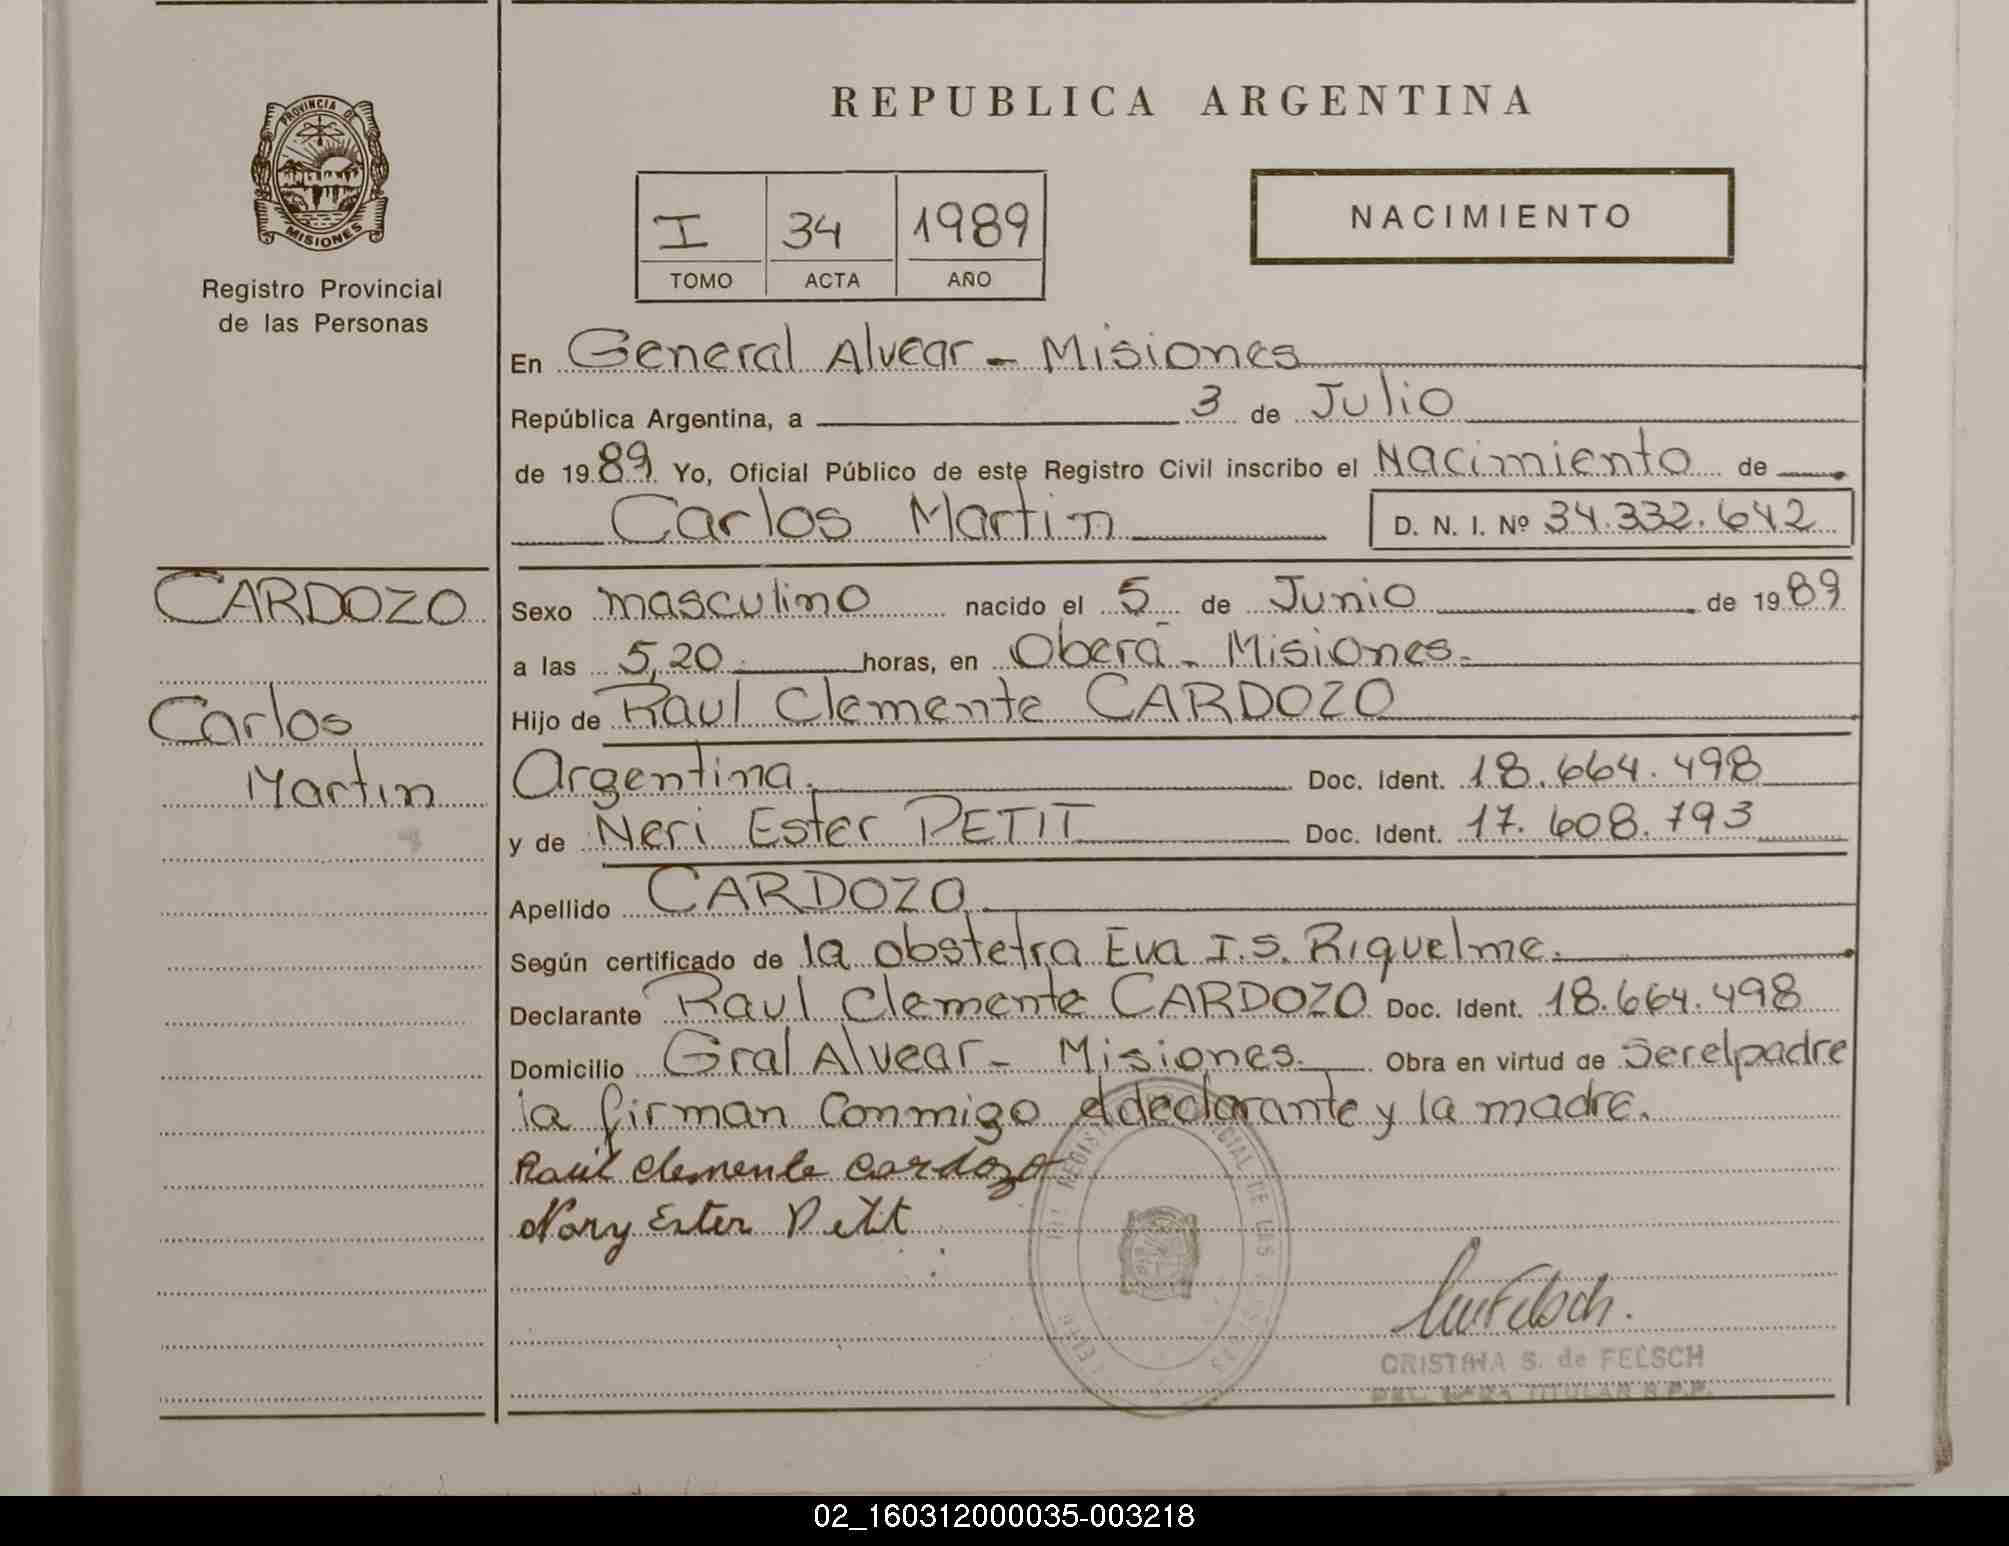 REPUBLICA ARGENTINA
PROVINCIA DE
MISIONES
Registro Provincial
de las Personas
I 34 1989
TOMO ACTA AÑO
NACIMIENTO
En General Alvear - Misiones
República Argentina, a 3 de Julio
de 19 89 Yo, Oficial Público de este Registro Civil inscribo el Nacimiento de
Carlos Martin D. N. I. Nº 34.332.642
CARDOZO
Carlos
Martin
Sexo masculino nacido el 5 de Junio de 19 89
a las 5,20 horas, en Oberá - Misiones.
Hijo de Raul Clemente CARDOZO
Argentina. Doc. Ident. 18.664.498
y de Neri Ester PETIT Doc. Ident. 17.608.793
Apellido CARDOZO
Según certificado de la obstetra Eva I.S. Riquelme.
Declarante Raul Clemente CARDOZO Doc. Ident. 18.664.498
Domicilio Gral Alvear - Misiones Obra en virtud de Ser el padre
la firman conmigo el declarante y la madre.
Raul Clemente Cardozo
Nory Ester Petit
CRISTINA S. de FELSCH
TITULAR R.P.P.
02_160312000035-003218